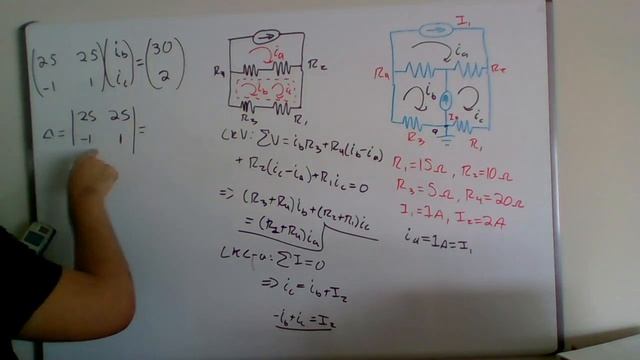 (25 25 -1 1)(ib ic)=(30 2)
Δ=|25 25 -1 1|=
ia
R4
R2
ib
ic
R3
R1
KVL: ΣV=ibR3+R4(ib-ia)
+R2(ic-ia)+R1ic=0
⇒(R3+R4)ib+(R2+R1)ic
=(R2+R4)ia
KCL-a: ΣI=0
⇒ ic=ib+I2
-ib+ic=I2
I1
ia
R4
R2
ib
ic
I2
a
R3
R1
R1=15Ω, R2=10Ω
R3=5Ω, R4=20Ω
I1=1A, I2=2A
ia=1A=I1